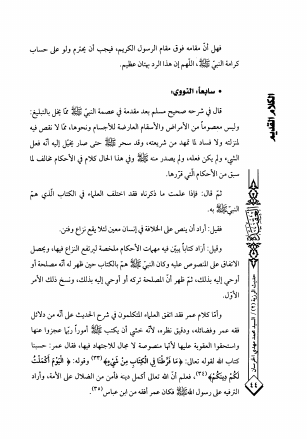 فهل أنّ مقامه فوق مقام الرسول الكريم، فيجب أن يحترم ولو على حساب
كرامة النبيّ ﷺ، اللّهم إن هذا الرد بهتان عظيم.
• سابعاً: النووي:
قال في شرحه صحيح مسلم بعد مقدمة في عصمة النبيّ ﷺ ممّا يخل بالتبليغ:
وليس معصوماً من الأمراض والأسقام العارضة للأجسام ونحوها، ممّا لا نقص فيه
لمنزلته ولا فساد لما تمهد من شريعته، وقد سحر ﷺ حتى صار يخيّل إليه أنّه فعل
الشيء ولم يكن فعله، ولم يصدر منه ﷺ وفي هذا الحال كلام في الأحكام مخالف لما
سبق من الأحكام الّتي قررها.
ثمّ قال: فإذا علمت ما ذكرناه فقد اختلف العلماء في الكتاب الّذي همّ
النبيّ ﷺ به.
فقيل: أراد أن ينص على الخلافة في إنسان معين لئلا يقع نزاع وفتن.
وقيل: أراد كتاباً يبيّن فيه مهمات الأحكام ملخصة ليرتفع النزاع فيها، ويحصل
الاتفاق على المنصوص عليه وكان النبيّ ﷺ همّ بالكتاب حين ظهر له أنّه مصلحة أو
أوحي إليه بذلك، ثمّ ظهر أنّ المصلحة تركه أو أوحي إليه بذلك، ونسخ ذلك الأمر
الأوّل.
وأمّا كلام عمر فقد اتفق العلماء المتكلمون في شرح الحديث على أنّه من دلائل
فقه عمر وفضائله، ودقيق نظره، لأنّه خشي أن يكتب ﷺ أموراً ربّما عجزوا عنها
واستحقوا العقوبة عليها لأنّها منصوصة لا مجال للاجتهاد فيها، فقال عمر: حسبنا
كتاب الله لقوله تعالى: ﴿مَا فَرَّطْنَا فِي الْكِتَابِ مِنْ شَيْءٍ﴾(٣٣) وقوله: ﴿الْيَوْمَ أَكْمَلْتُ
لَكُمْ دِينَكُمْ﴾(٣٤)، فعلم أنّ الله تعالى أكمل دينه فأمن من الضلال على الأمة، وأراد
الترفيه على رسول الله ﷺ فكان عمر أفقه من ابن عباس(٣٥).
الكلام القديم
٤٤